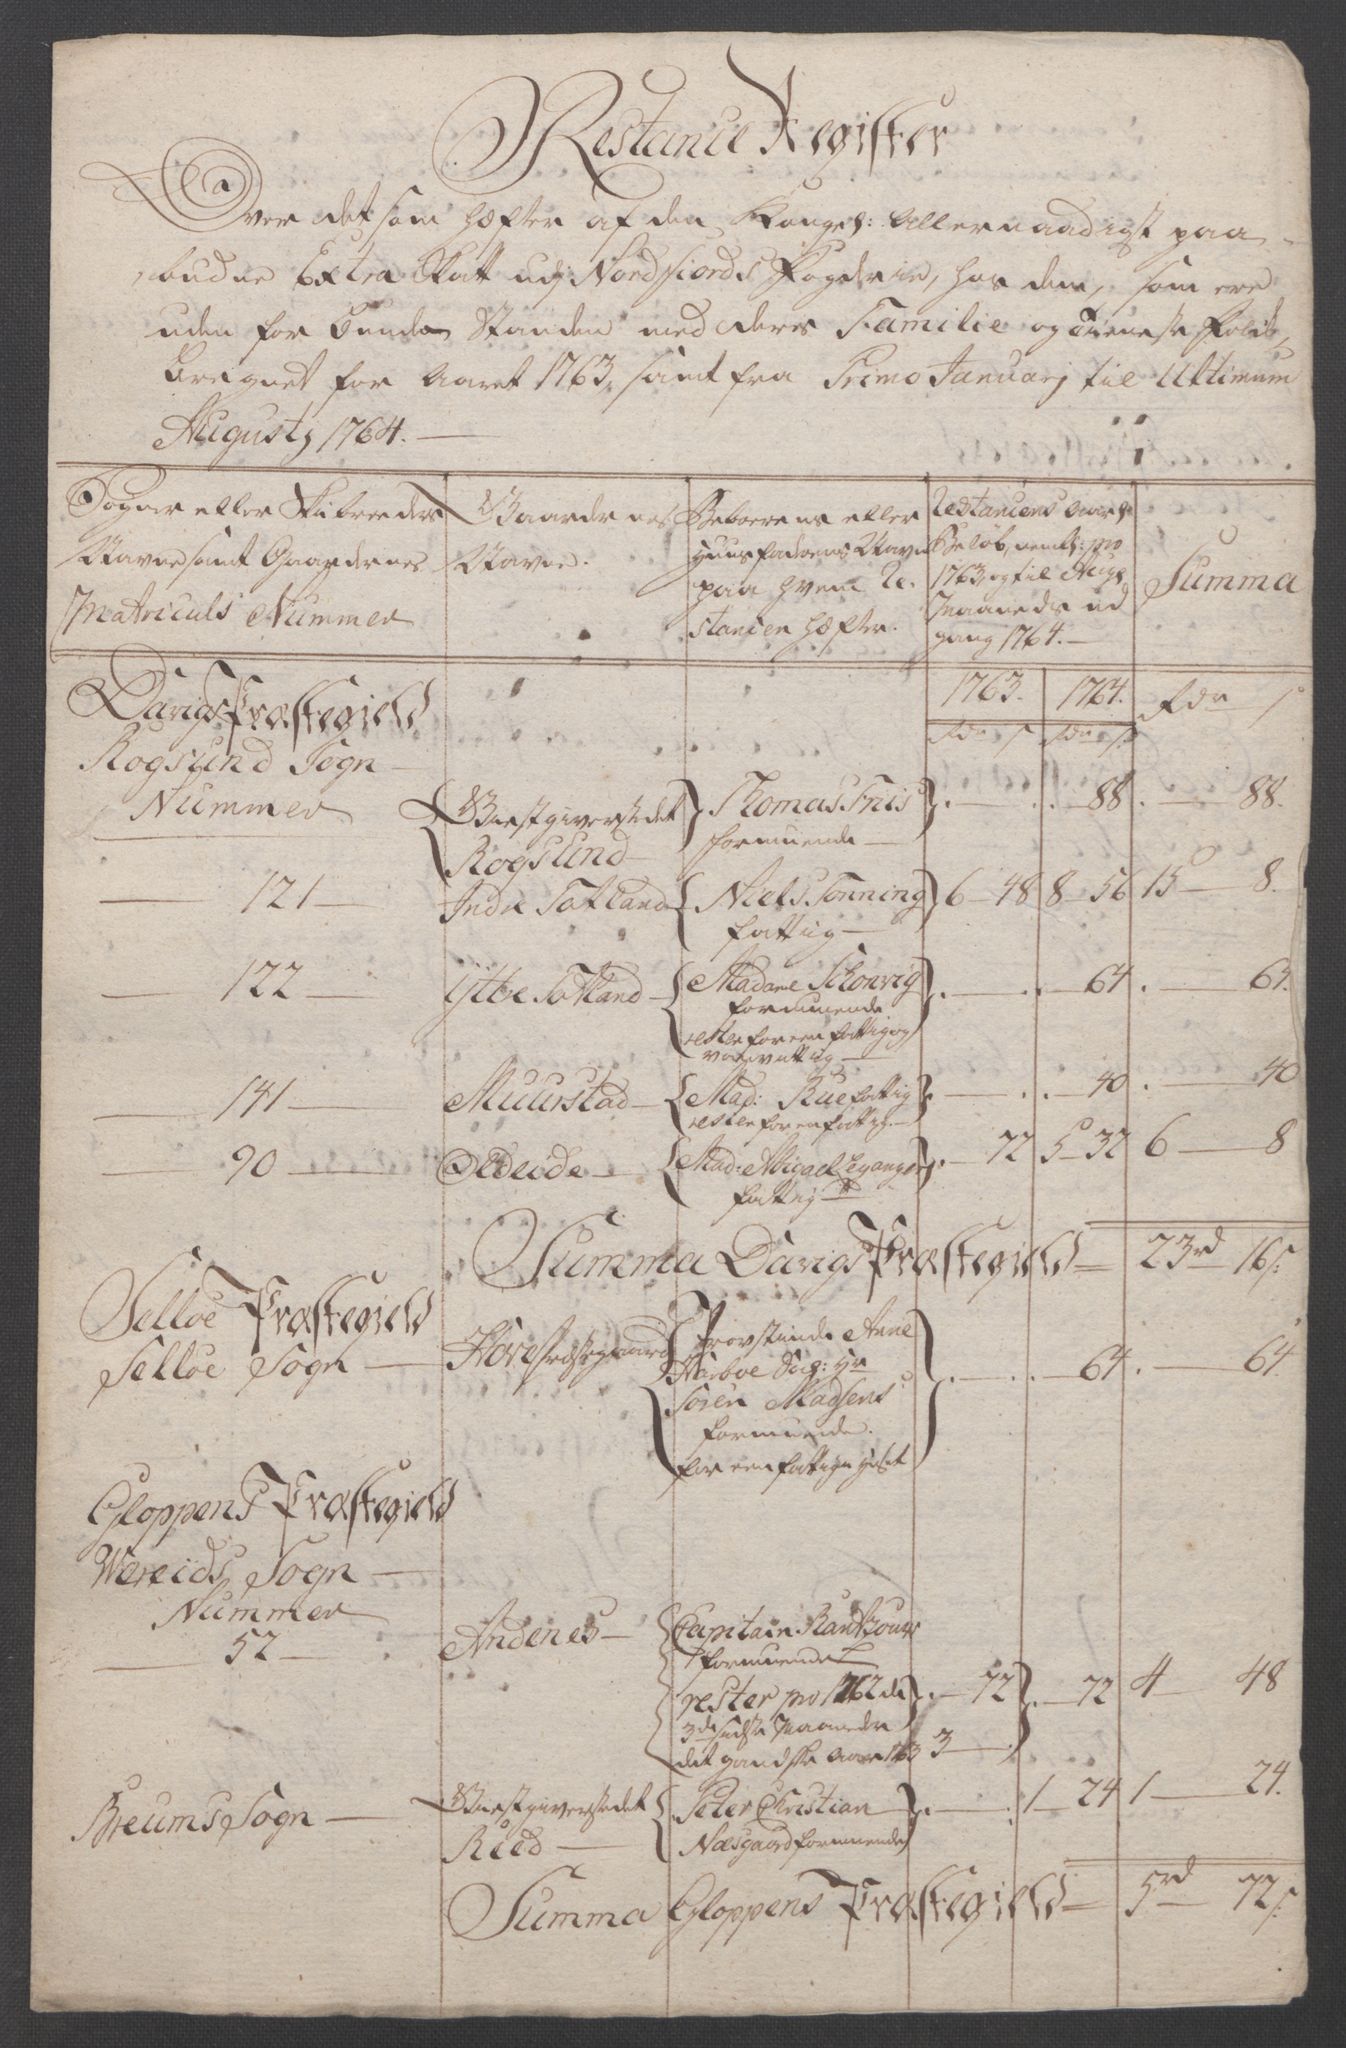 Restance Register
Over det som hæfter af den Kongel: Allernaadigst paa
budne Extra Skatt udj Nordfiords Fogderie, hos dem, som ere
uden for Bonde Standen med deres Familie og Tieneste Folk,
beregnet for Aaret 1763, samt fra Primo Januarj til Ultimum
Augustj 1764.
Sogne eller Skibreeders
Navne samt Gaardernes
Matriculs Nummer
Gaardernes
Navne.
Beboerens eller
Huusfaderens Navn
paa hvem Re-
stancen hæfter.
Restancens Aarl:
Beløb, nembl: pro
1763 og til Aug:
Maaneds ud
gang 1764.
Summa
Davigs Præstegield
1763. 1764. Rdr s
Rdr s Rdr s
Rogsund Sogn
Nummer
Giestgiverstedet
Rogsund
Thomas Friis
formuende
88 88.
121 Indre Totland Niels Tønning
fattig
6 48 8 56 15 8.
122 Yttre Totland Madame Schowig
formuende
rester for een fattig og
vanvittig
64 64.
141 Muurstad Mad: Rue fattig
rester for en fattig.
40 40
90 Oldeide Mad: Abigael Leganger
fattig
72 5 32 6 8
Summa Davigs Præstegield 23rd 16s:
Selløe Præstegield
Selløe Sogn
Hove Præstegaard
Provstinde Anne
Harboe Sal: Hr
Søren Madsens
formuende.
for een fattig i Huset
64 64.
Gloppens Præstegield
Wereids Sogn
Nummer
52 Andenes Capitain Rantzour
formuende
rester pro 1762 de
3de sidste Maaneder
det gandske Aar 1763
72 3 72 4 48
Breums Sogn
Giestgiverstedet
Reed
Peter Christian
Næsgaard formuende
1 24 1 24.
Summa Gloppens Præstegield 5rd 72s: